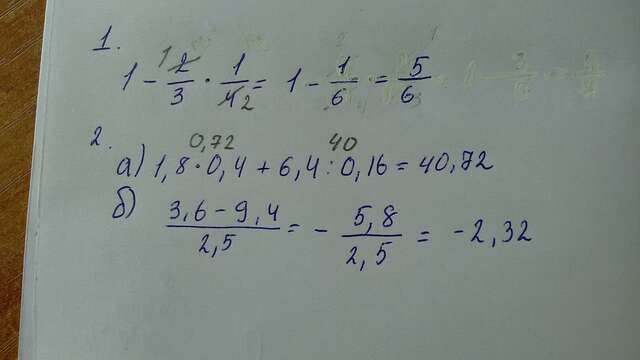 1.
1 - 2/3 · 1/4 = 1 - 1/6 = 5/6
1
2
2.
0,72 40
а) 1,8 · 0,4 + 6,4 : 0,16 = 40,72
б) 3,6 - 9,4 / 2,5 = - 5,8 / 2,5 = -2,32